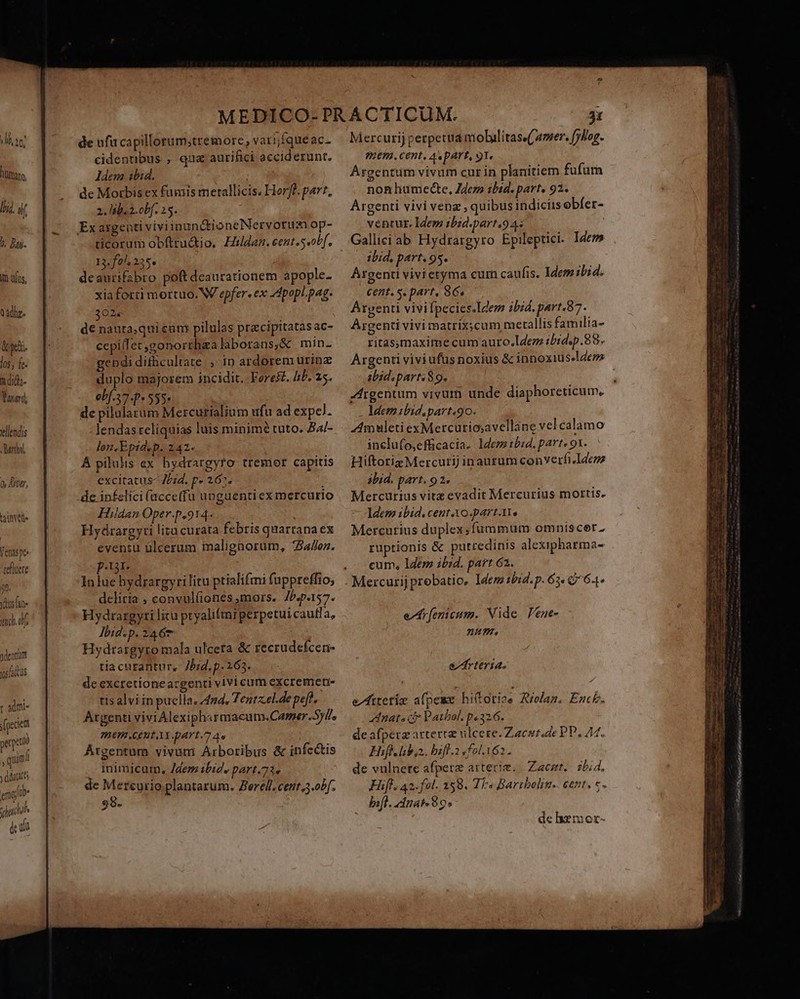 MEDICO-PRACTICUM. 31
de usu capillorum, tremore, variisque ac-
cidentibus, quæ aurifici acciderunt.
Idem ibid.
de Morbis ex fumis metallicis. Horst. part.
2. lib. 2. obs. 25.
Ex argenti vivi inunctione Nervorum op-
ticorum obstructio. Hildan. cent. 5. obs.
13. fol. 235.
de aurifabro post deaurationem apople-
xia forti mortuo. Wepfer. ex Apopl. pag.
302.
de nauta, qui cum pilulas præcipitatas ac-
cepisset, gonorrhæa laborans, & min-
gendi difficultate, in ardorem urinæ
duplo majorem incidit. Forest. lib. 25.
obs. 37. p. 555.
de pilularum Mercurialium usu ad expel-
lendas reliquias luis minimè tuto. Bal-
lon. Epid. p. 242.
A pilulis ex hydrargyro tremor capitis
excitatus. Ibid. p. 263.
de infelici successu unguenti ex mercurio
Hildan Oper. p. 914.
Hydrargyri litu curata febris quartana ex
eventu ulcerum malignorum, Ballon.
p. 131.
In lue hydrargyri litu ptialismi suppressio,
deliria, convulsiones, mors. Ib. p. 157.
Hydrargyri litu ptyalismi perpetui causa,
Ibid. p. 246.
Hydrargyro mala ulcera & recrudescen-
tia curantur, Ibid. p. 263.
de excretione argenti vivi cum excremen-
tis alvi in puella. And. Tentzel. de pest.
Argenti vivi Alexipharmacum. Camer. Syll.
mem. cent. XI. part. 74.
Argentum vivum Arboribus & insectis
inimicum, Idem ibid. part. 73.
de Mercurio plantarum. Borell. cent. 3. obs.
98.
Mercurij perpetua mobilitas. Camer. Syllog.
mem. cent. 4. part. 91.
Argentum vivum cur in planitiem fusum
non humecte, Idem ibid. part. 92.
Argenti vivi venæ, quibus indiciis obser-
ventur. Idem ibid. part. 94.
Gallici ab Hydrargyro Epileptici. Idem
ibid. part. 95.
Argenti vivi etyma cum causis. Idem ibid.
cent. 5. part. 86.
Argenti vivi species. Idem ibid. part. 87.
Argenti vivi matrix; cum metallis familia-
ritas; maxime cum auro. Idem ibid. p. 88.
Argenti vivi usus noxius & innoxius. Idem
ibid. part. 89.
Argentum vivum unde diaphoreticum,
Idem ibid. part. 90.
Amuleti ex Mercurio, avellanæ vel calamo
incluso, efficacia. Idem ibid. part. 91.
Historia Mercurij in aurum conversi. Idem
ibid. part. 92.
Mercurius vitæ evadit Mercurius mortis.
Idem ibid. cent. XO. part. XI.
Mercurius duplex, summum omnis cor-
ruptionis & putredinis alexipharma-
cum, Idem ibid. part 62.
Mercurij probatio, Idem ibid. p. 63. & 64.
Arsenicum. Vide Vene-
num.
Arteria.
Arteriæ asperæ historiæ Riolan. Ench.
Anat. & Pathol. p. 326.
de asperæ arteriæ ulcere. Zacut. de PP. M.
Hist. lib. 2. hist. 2. fol. 162.
de vulnere asperæ arteriæ. Zacut. ibid.
Hist. 42. fol. 258. Th. Bartholin. cent. 5.
hist. Anat. 89.
de hæmor-